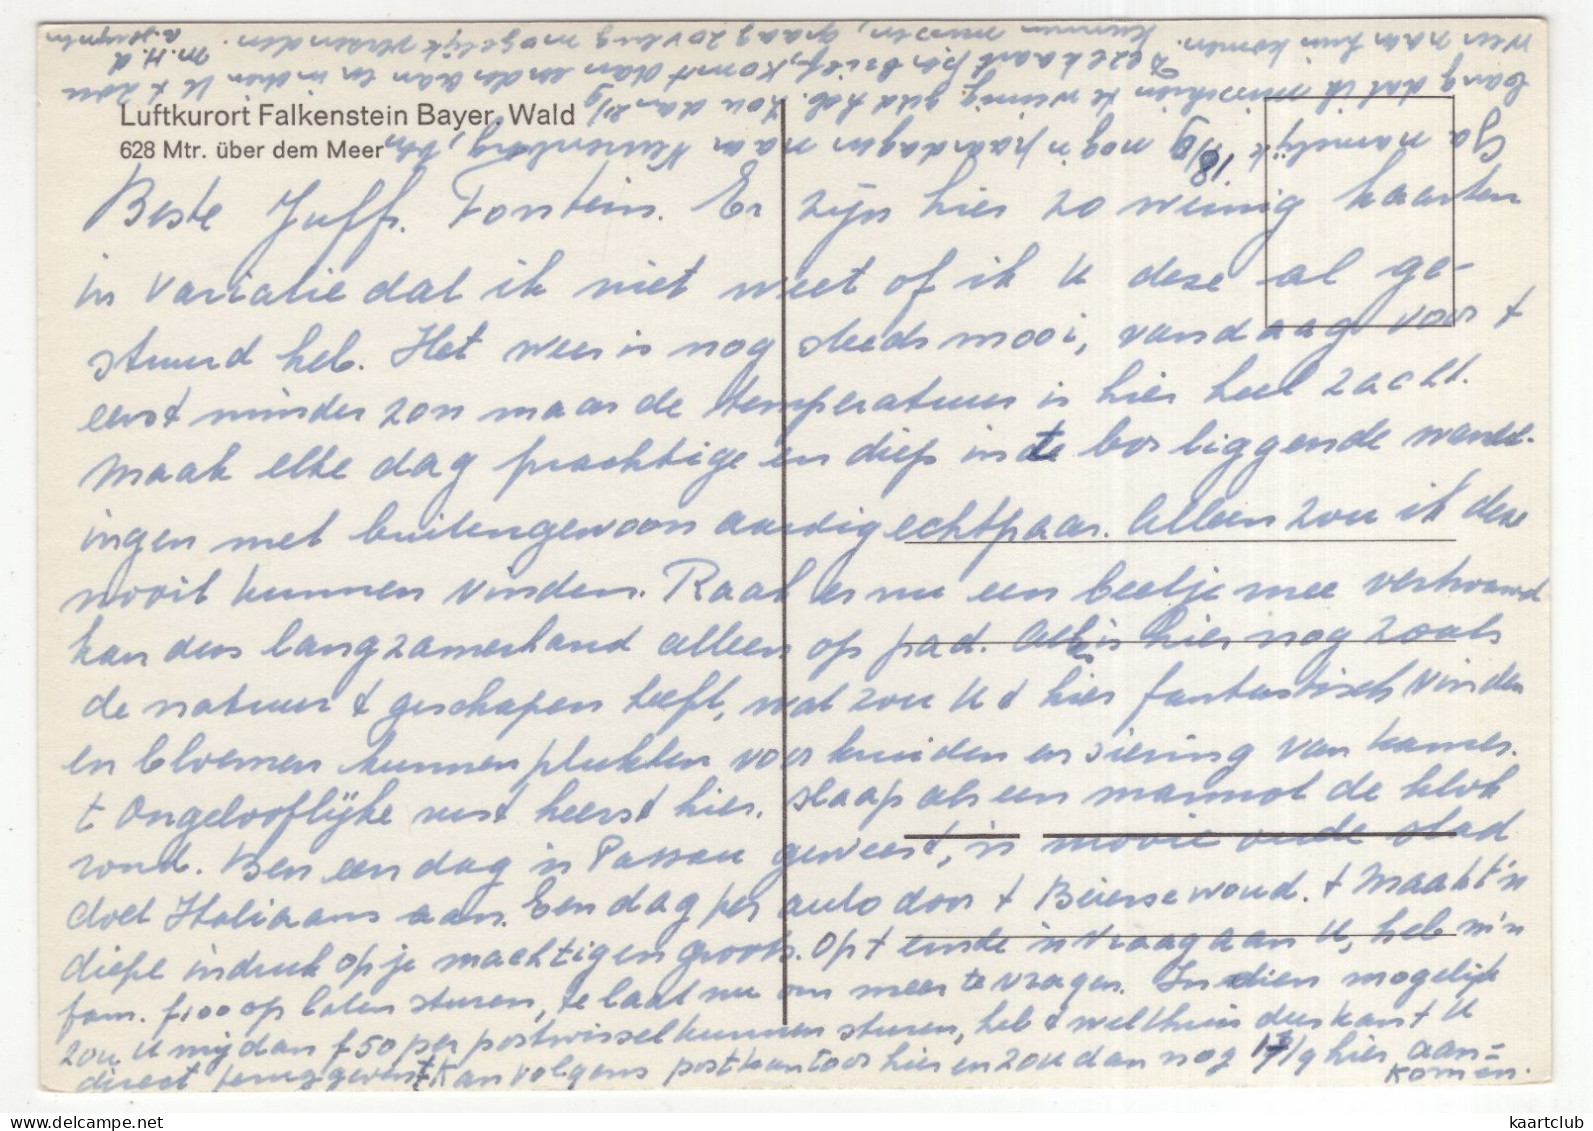 Luftkurort Falkenstein Bayer. Wald
628 Mtr. über dem Meer
Beste Juffr. Fontein. Er zijn hier zo weinig kaarten
in variatie dat ik niet weet of ik U deze al ge-
stuurd heb. Het weer is nog steeds mooi, vandaag voor t
eerst minder zon maar de temperatuur is hier heel zacht.
Maak elke dag prachtige en diep in de bos liggende wandel-
ingen met buitengewoon aardig echtpaar. Alleen zou ik deze
nooit kunnen vinden. Raak er nu een beetje mee vertrouwd
kan dus langzamerhand alleen op pad. Alles is hier nog zoals
de natuur t geschapen heeft, wat zou U t hier fantastisch vinden
en bloemen kunnen plukken voor kruiden en siering van kamer.
t Ongelooflijke rust heerst hier. slaap als een marmot de klok
rond. Ben een dag in Passau geweest, is mooie oude stad
doet Italiaans aan. Een dag per auto door t Beierse woud. t Maakt 'n
diepe indruk op je machtigen groots. Op t einde 'n vraag aan U, heb m'n
fam. f,100 op laten sturen, te laat nu om meer te vragen. Indien mogelijk
zou U mij dan f 50 per postwissel kunnen sturen, heb t wel thuis dus kan t U
direct terug geven t Kan volgens postkantoor hier en zou dan nog 17/9 hier aan=
komen.
Ga namelijk 18/9 nog 'n paar dagen naar Neurenberg,
bang dat ik misschien te weinig geld heb. Zou dan 21/9
weer naar huis komen. Deze kaart per brief, komt dan eerder aan en indien U t zou
kunnen missen, graag zo vlug mogelijk verzenden.
M. H. d.